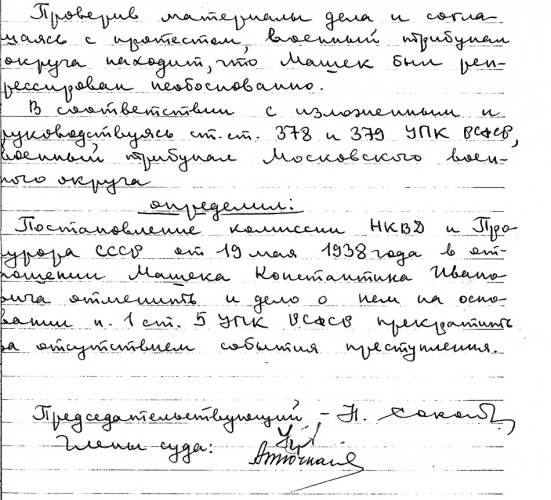 Проверив материалы дела и согла-
шаясь с протестом, военный трибунал
округа находит, что Машек был реп-
рессирован необоснованно.
В соответствии с изложенными и
руководствуясь ст.ст. 378 и 379 УПК РСФСР,
военный трибунал Московского воен-
ного округа
определил:
Постановление комиссии НКВД и Про-
курора СССР от 19 мая 1938 года в от-
ношении Машека Константина Ивано-
вича отменить и дело о нем на осно-
вании п. 1 ст. 5 УПК РСФСР прекратить
за отсутствием события преступления.
Председательствующий - Н.
Члены суда: